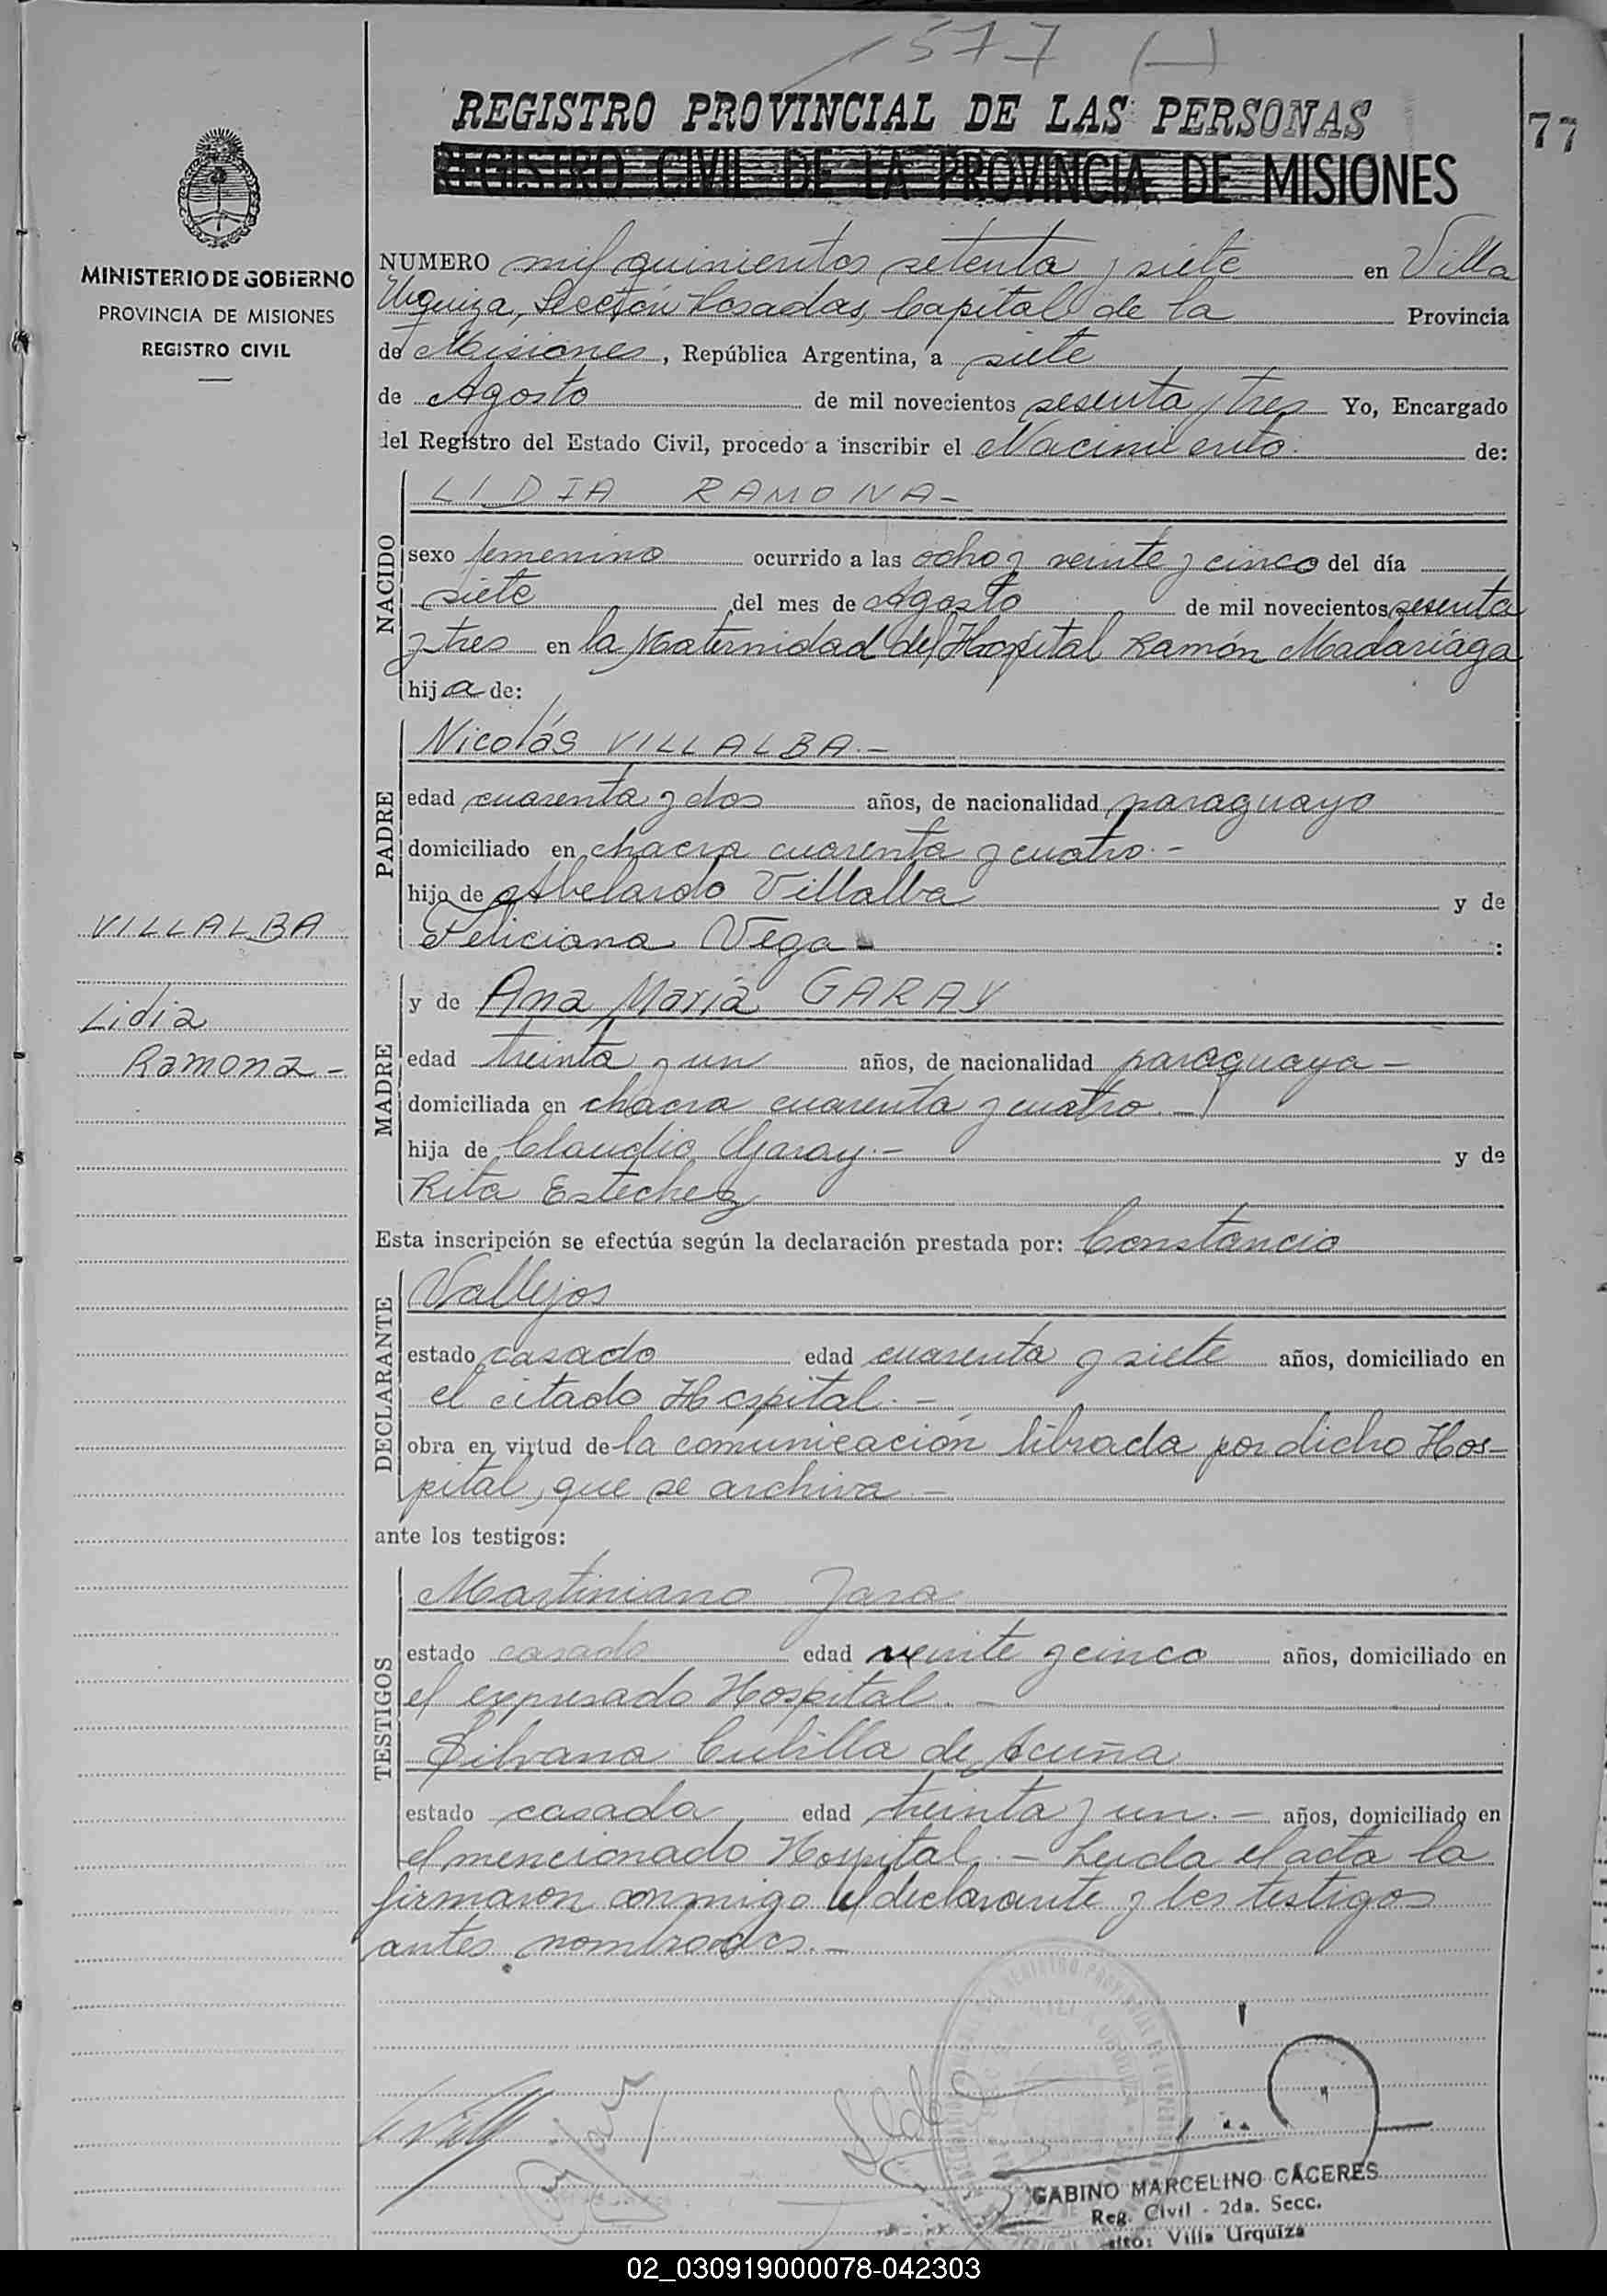 1577 (-)
REGISTRO PROVINCIAL DE LAS PERSONAS
77
REGISTRO CIVIL DE LA PROVINCIA DE MISIONES
MINISTERIO DE GOBIERNO
PROVINCIA DE MISIONES
REGISTRO CIVIL
NUMERO mil quinientos setenta y siete en Villa
Urquiza, Sección Posadas, Capital de la Provincia
de Misiones, República Argentina, a siete
de Agosto de mil novecientos sesenta y tres Yo, Encargado
del Registro del Estado Civil, procedo a inscribir el Nacimiento. de:
NACIDO
LIDIA RAMONA-
sexo femenino ocurrido a las ocho y veinte y cinco del día
siete del mes de Agosto de mil novecientos sesenta
y tres en la Maternidad del Hospital Ramón Madariaga
hija de:
PADRE
Nicolás VILLALBA.-
edad cuarenta y dos años, de nacionalidad paraguayo
domiciliado en chacra cuarenta y cuatro.-
hijo de Abelardo Villalba y de
Feliciana Vega-:
VILLALBA
Lidia
Ramona-
MADRE
y de Ana María GARAY
edad treinta y un años, de nacionalidad paraguaya-
domiciliada en chacra cuarenta y cuatro.-
hija de Claudio Garay.- y de
Rita Estechez
Esta inscripción se efectúa según la declaración prestada por: Constancio
DECLARANTE
Vallejos
estado casado edad cuarenta y siete años, domiciliado en
el citado Hospital.-
obra en virtud de la comunicación librada por dicho Hos-
pital, que se archiva.-
ante los testigos:
TESTIGOS
Martiniano Jara
estado casado edad veinte y cinco años, domiciliado en
el expresado Hospital.-
Silvana Cubilla de Acuña
estado casada edad treinta y un.- años, domiciliado en
el mencionado Hospital.- Leida el acta la
firmaron conmigo el declarante y los testigos
antes nombrados.-
GABINO MARCELINO CÁCERES
Reg. Civil - 2da. Secc.
Villa Urquiza
02_030919000078-042303